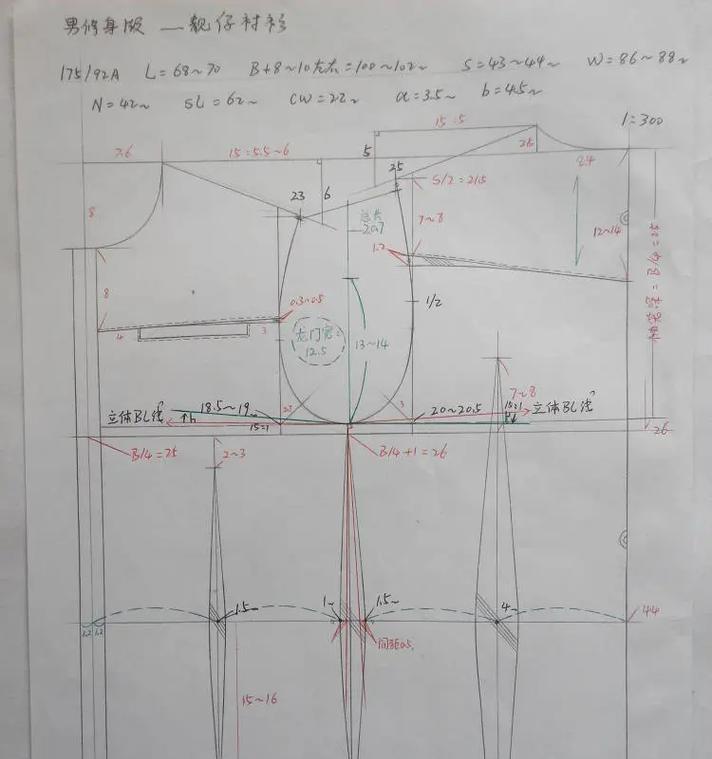 男修身版 — 靓仔衬衫
175/92A L=68~70 B+8~10左右=100~102~ S=43~44~ W=86~88~
N=42~ SL=62~ CW=22~ a=3.5~ b=4.5~
1=300
15:5
7.6
15=5.5~6
5
2.5
2.4
25
S/2=21.5
23
6
8
7~8
12~14
1.2
1/2
0.3~0.5
8
4
3
龙门宽:
12.5
13~14
立体BL线
18.5~19
b
15=1
20~20.5
7~8
15=1
立体BL线
26
B/4=25
2~3
B/4+1=26
1.5~
1~
1.5~
4~
44
1.2
1.2
间距0.5
15~16